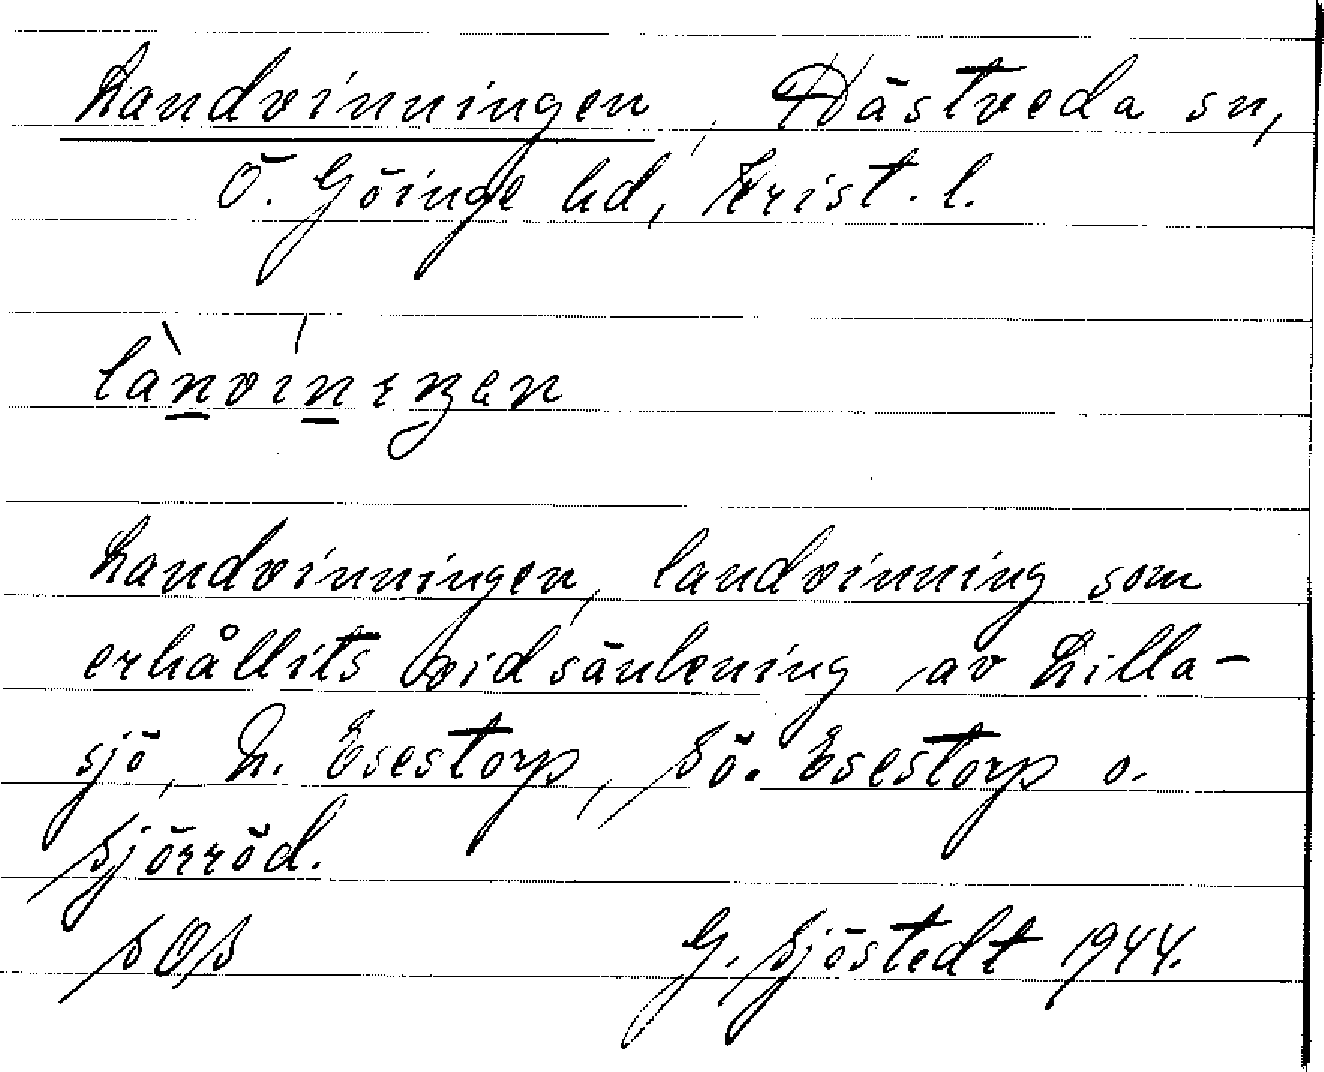 Landvinningen, Hästveda sn,
Ö. Göinge hd, Krist. l.
lànvíneŋen
Landvinningen, landvinning som
erhållits vid sänkning av Lilla-
sjö, N. Esestorp, Sö. Esestorp o.
Sjörröd.
SOS G. Sjöstedt 1944.